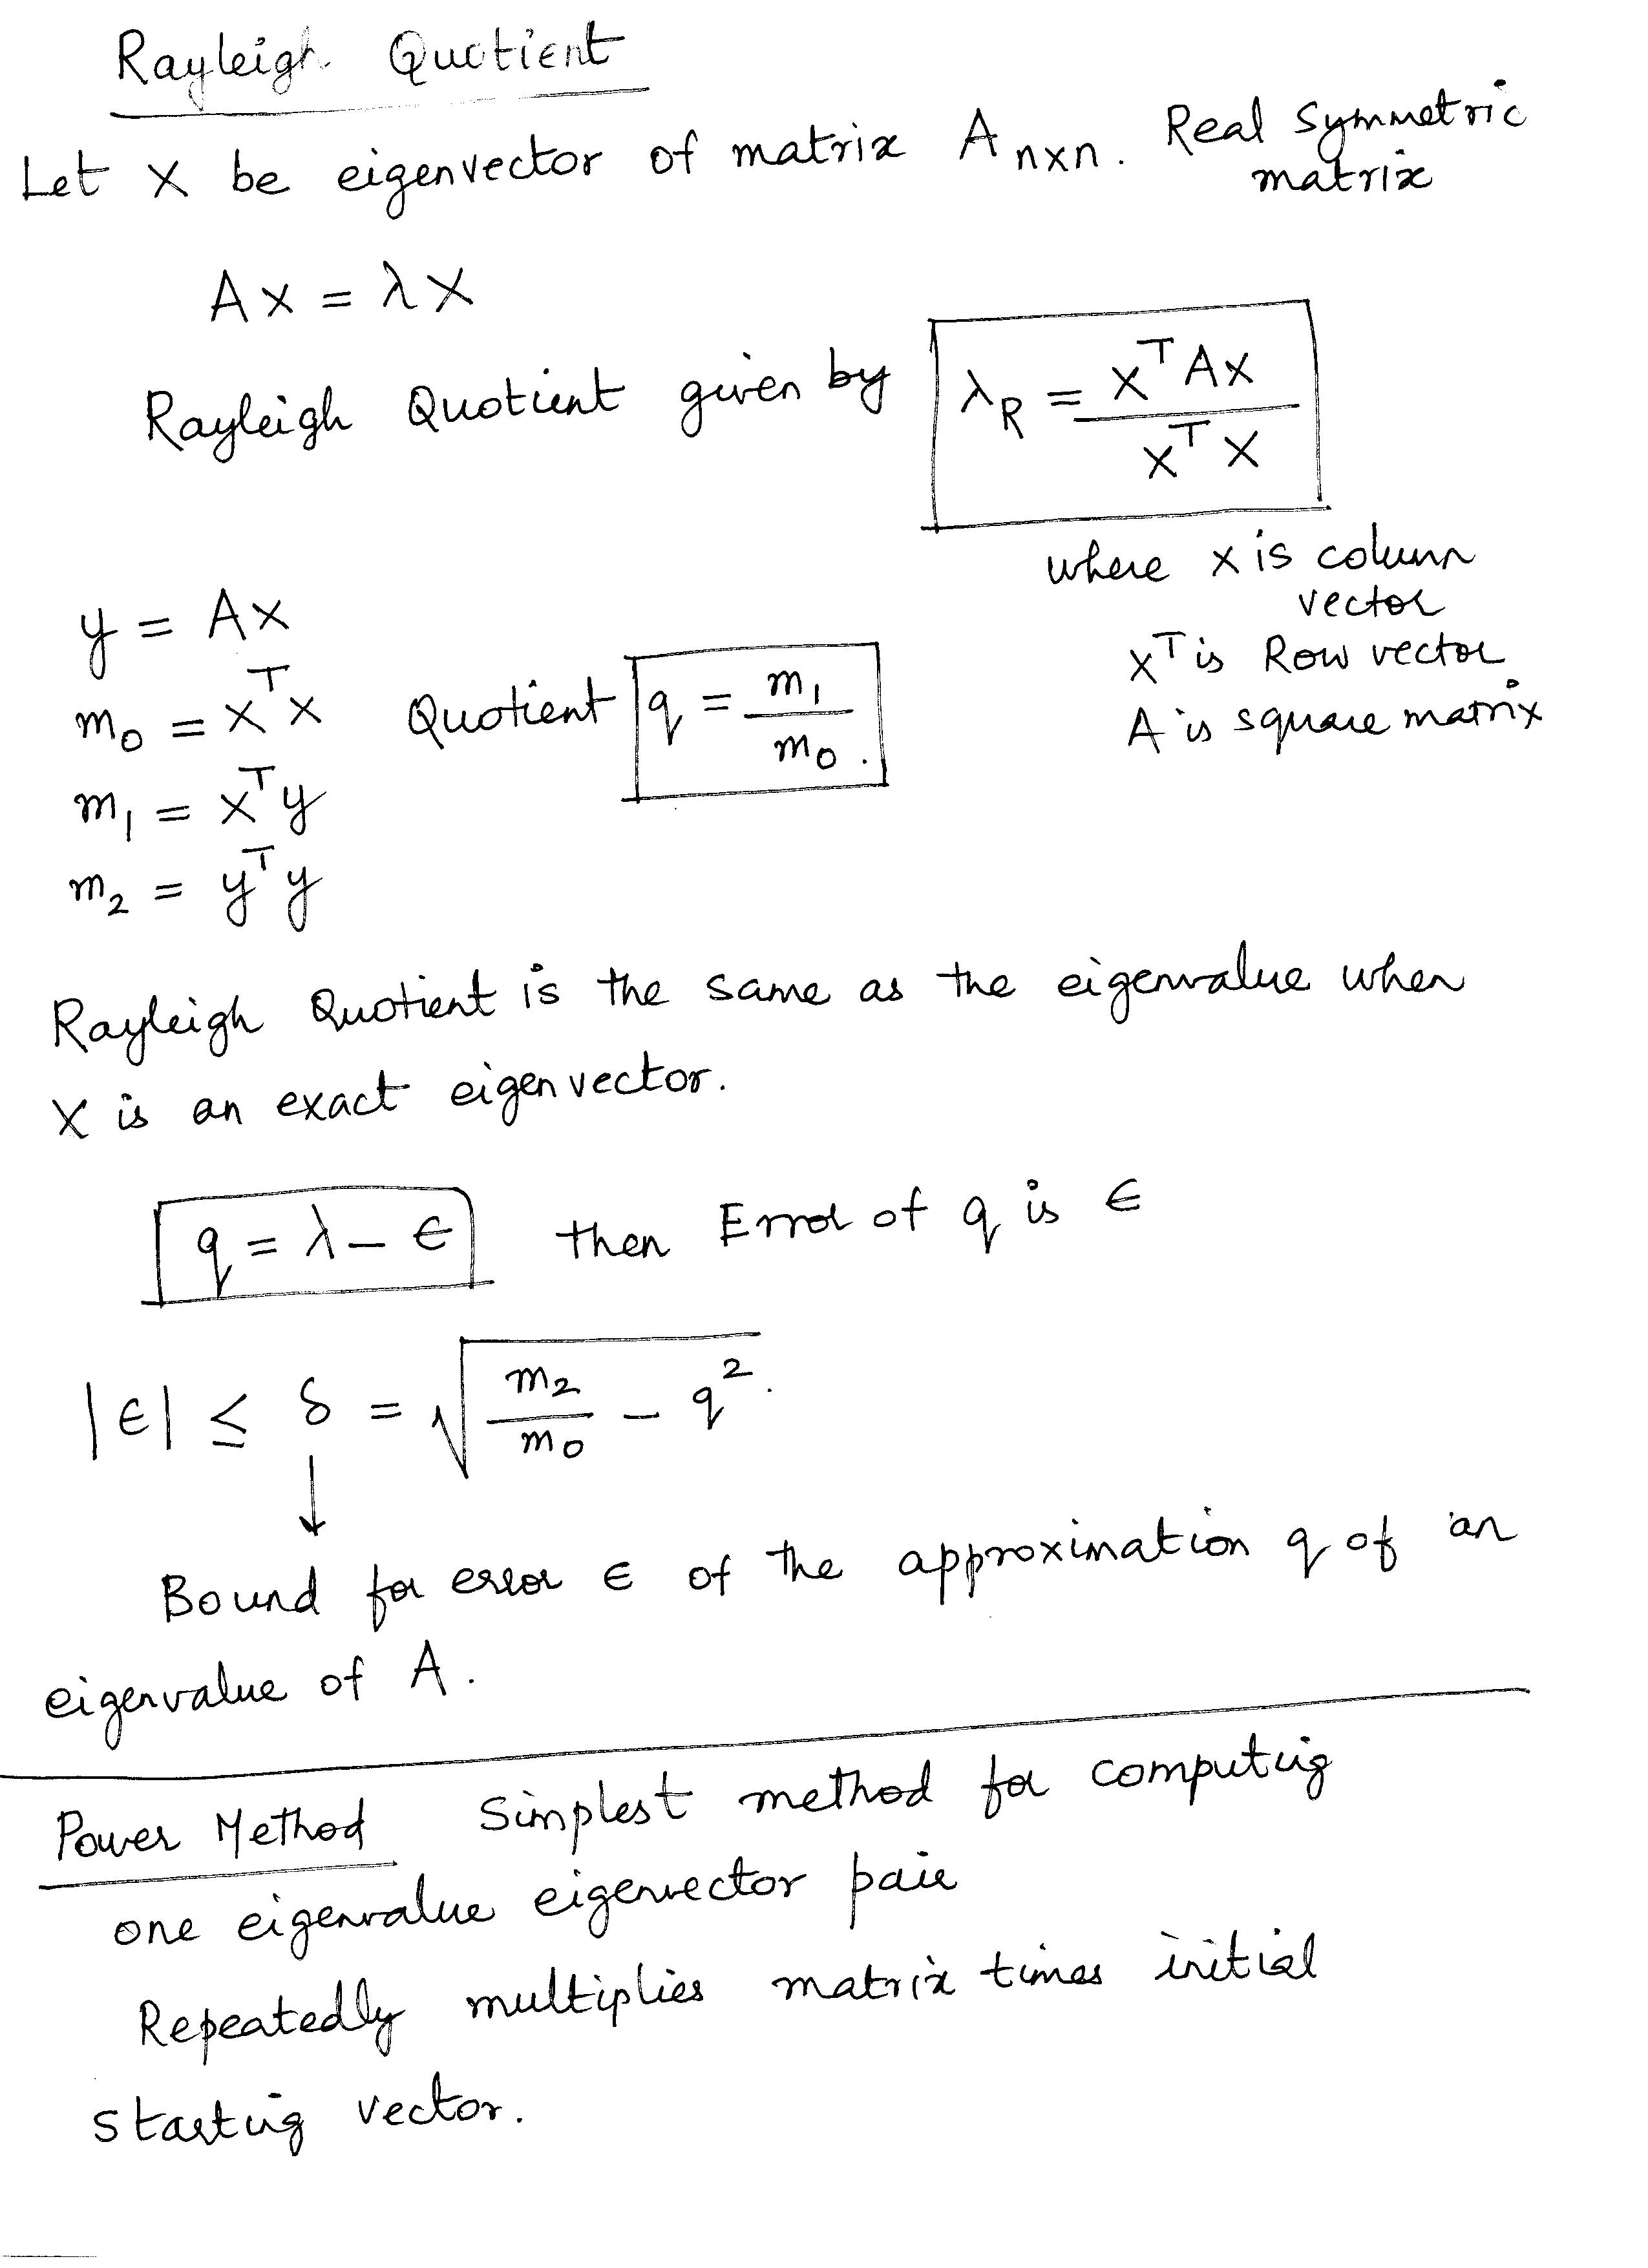 Rayleigh Quotient
Let x be eigenvector of matrix A n×n. Real symmetric
matrix
Ax = λx
Rayleigh Quotient given by λ_R = x^T Ax / x^T x
where x is column
vector
x^T is Row vector
A is square matrix
y = Ax
m₀ = x^T x Quotient q = m₁ / m₀.
m₁ = x^T y
m₂ = y^T y
Rayleigh Quotient is the same as the eigenvalue when
x is an exact eigenvector.
q = λ – ϵ then Error of q is ϵ
|ϵ| ≤ δ = √(m₂ / m₀ – q²).
↓
Bound for error ϵ of the approximation q of an
eigenvalue of A.
Power Method Simplest method for computing
one eigenvalue eigenvector pair
Repeatedly multiplies matrix times initial
starting vector.